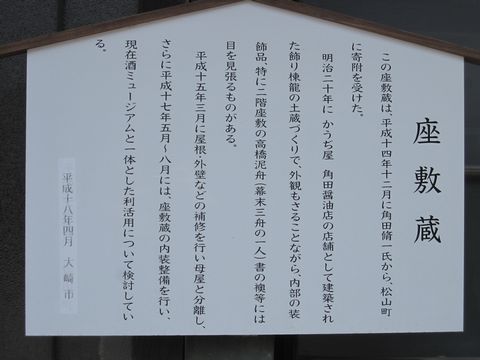 座敷蔵
この座敷蔵は、平成十四年十二月に角田脩一氏から、松山町
に寄附を受けた。
明治二十年に かうぢ屋 角田醤油店の店舗として建築され
た飾り棟龍の土蔵づくりで、外観もさることながら、内部の装
飾品、特に二階座敷の高橋泥舟(幕末三舟の一人)書の襖等には
目を見張るものがある。
平成十五年三月に屋根・外壁などの補修を行い母屋と分離し、
さらに平成十七年五月～八月には、座敷蔵の内装整備を行い、
現在酒ミュージアムと一体とした利活用について検討してい
る。
平成十八年四月 大崎市